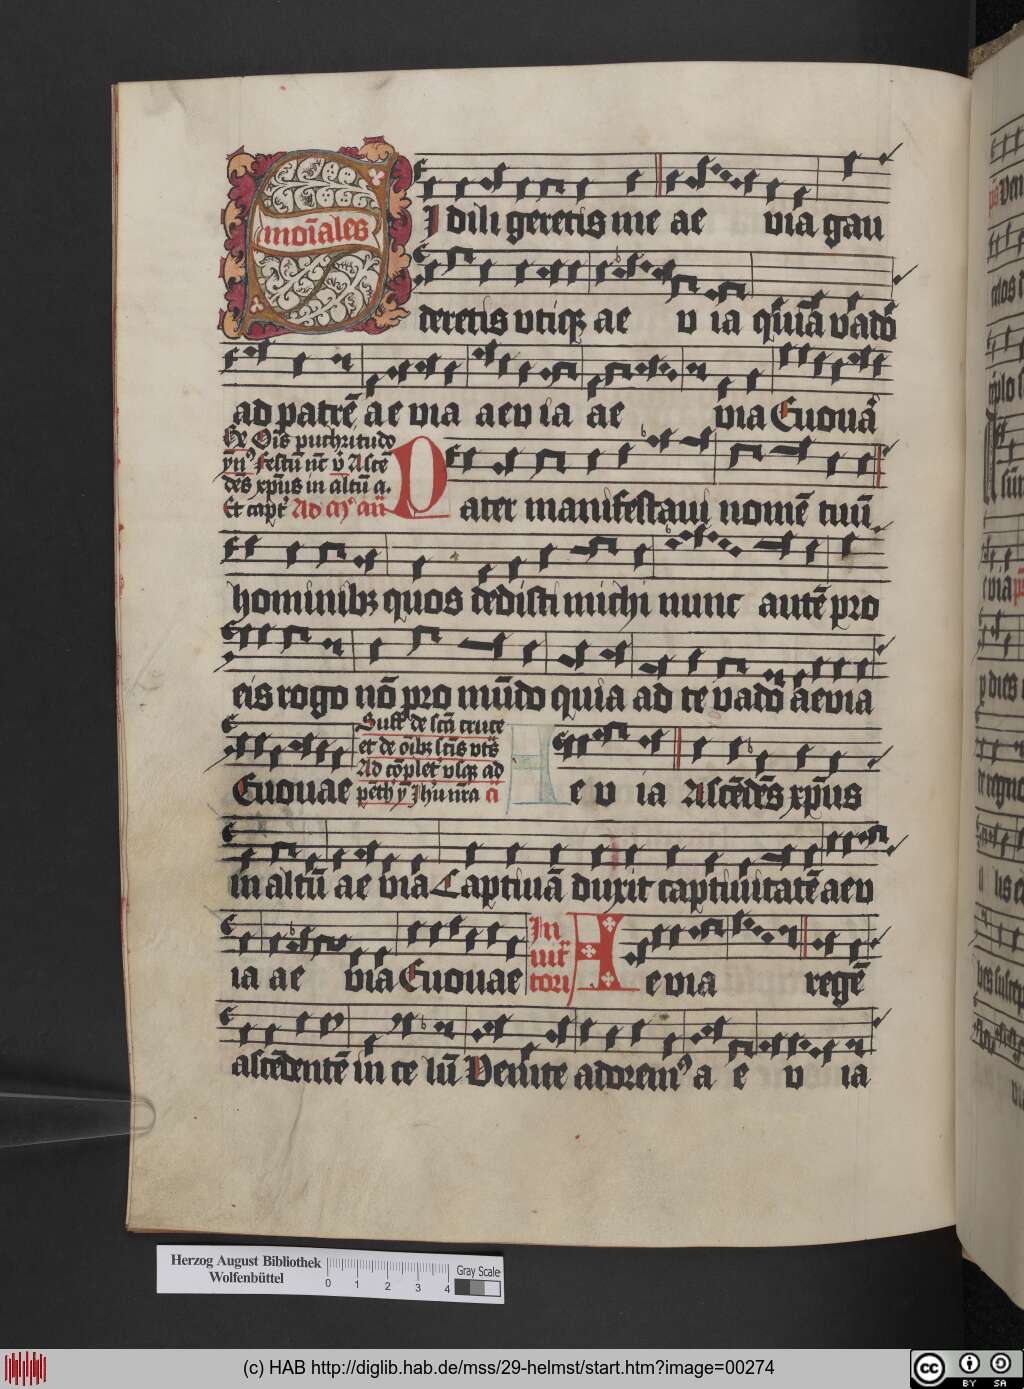 moīales
I dili geretis me ae via gau
deretis vtiqꝫ ae v ia quia vado
ad patrē ae via aev ia ae via Euoua
puchritudo
festū
in altū a.
Et capt' Ad
Pater manifestaui nomē tuū
hominibꝫ quos dedisti michi nunc autē pro
eis rogo nō pro mūdo quia ad te vado aevia
Suff' de scā cruce
et de oībꝫ scīs vt
Ad cōplet' vsqꝫ ad
Euouae
Ae v ia Ascēdēs xp̄us
in altū ae via Captiuā duxit captiuitatē aev
ia ae via Euouae
In
uit
tori
Aevia regē
ascēdentē in ce lū Venite adorem⁹ a e v ia
Herzog August Bibliothek
Wolfenbüttel
0 1 2 3 4
Gray Scale
(c) HAB http://diglib.hab.de/mss/29-helmst/start.htm?image=00274
cc BY SA